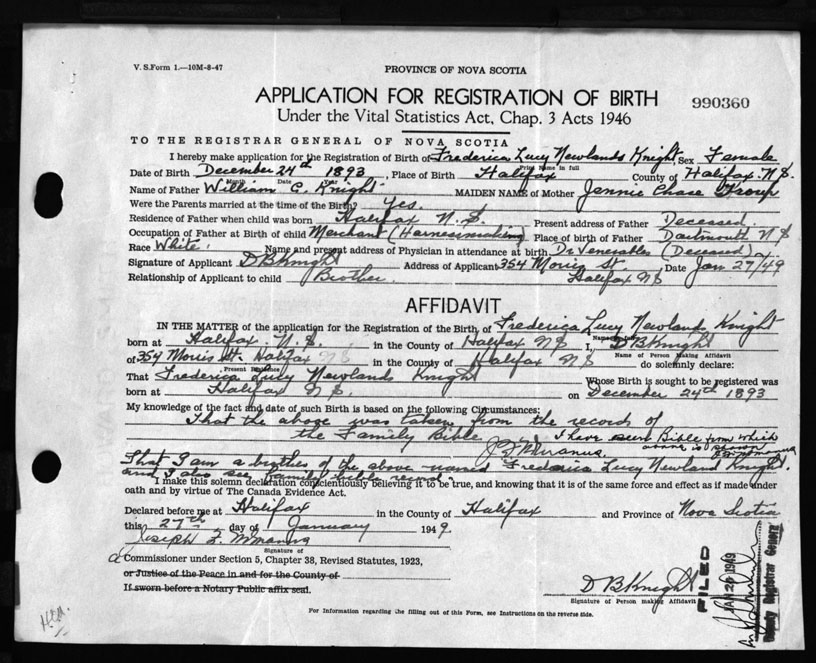 V. S. Form 1.—10M-8-47
PROVINCE OF NOVA SCOTIA
APPLICATION FOR REGISTRATION OF BIRTH
990360
Under the Vital Statistics Act, Chap. 3 Acts 1946
TO THE REGISTRAR GENERAL OF NOVA SCOTIA
I hereby make application for the Registration of Birth of Frederica Lucy Newlands Knight, Sex Female
Print Name in full
Date of Birth December 24th 1893, Place of Birth Halifax County of Halifax N.S.
Month Date Year
Name of Father William C. Knight MAIDEN NAME of Mother Jennie Chase Troup
Were the Parents married at the time of the Birth? Yes.
Residence of Father when child was born Halifax N.S. Present address of Father Deceased
Occupation of Father at Birth of child Merchant (Harnessmaking) Place of birth of Father Dartmouth N S
Race White. Name and present address of Physician in attendance at birth Dr Venerables (Deceased)
Signature of Applicant D B Knight Address of Applicant 354 Morris St. Date Jan 27/49
Halifax N S
Relationship of Applicant to child Brother.
AFFIDAVIT
IN THE MATTER of the application for the Registration of the Birth of Frederica Lucy Newlands Knight
born at Halifax N.S. in the County of Halifax N S I, D B Knight
Name of Person Making Affidavit
of 354 Morris St. Halifax N S in the County of Halifax N S do solemnly declare:
Present Residence
That Frederica Lucy Newlands Knight Whose Birth is sought to be registered was
born at Halifax N S. on December 24th 1893
My knowledge of the fact and date of such Birth is based on the following Circumstances:
That the above was taken from the records of
the Family Bible. I have seen Bible from which
above is
That I am a brother of the above named Frederica Lucy Newland Knight.
and I also see family bible record.
I make this solemn declaration conscientiously believing it to be true, and knowing that it is of the same force and effect as if made under
oath and by virtue of The Canada Evidence Act.
Declared before me at Halifax in the County of Halifax and Province of Nova Scotia
this 27th day of January 1949
Joseph F.
Signature of
A Commissioner under Section 5, Chapter 38, Revised Statutes, 1923,
or Justice of the Peace in and for the County of
If sworn before a Notary Public affix seal.
D B Knight
Signature of Person making Affidavit
FILED
JAN 1949
Deputy Registrar General
For Information regarding the filling out of this Form, see Instructions on the reverse side.